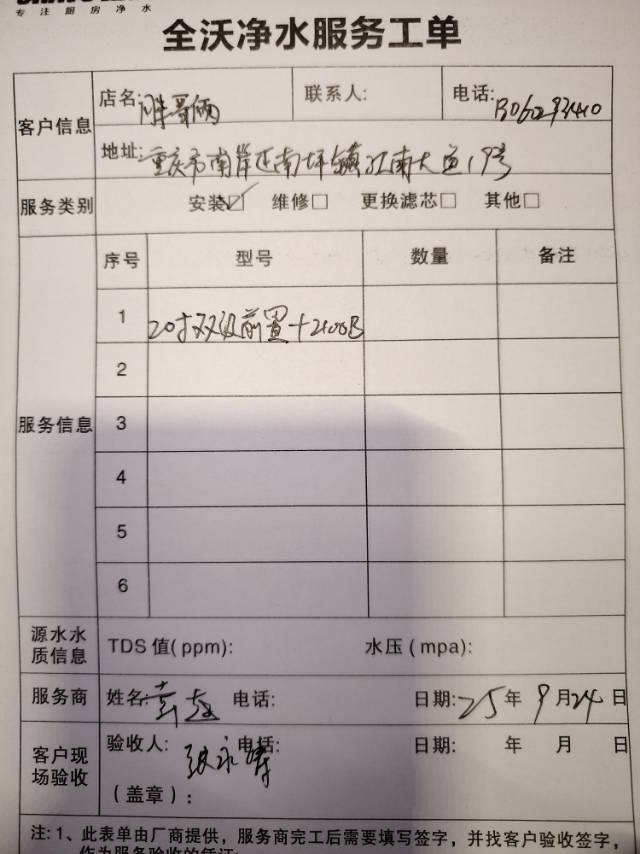 专注厨房净水
全沃净水服务工单
客户信息
店名: 胖哥俩 联系人: 电话:
地址: 重庆市南岸区南坪镇江南大道19号
服务类别 安装☑ 维修□ 更换滤芯□ 其他□
服务信息
序号 型号 数量 备注
1 20寸双级前置+2100B
2
3
4
5
6
源水水质信息 TDS 值(ppm): 水压(mpa):
服务商 姓名: 电话: 日期: 25年9月24日
客户现场验收 验收人: 张永 电话: 日期: 年 月 日
(盖章):
注: 1、此表单由厂商提供，服务商完工后需要填写签字，并找客户验收签字，
作为服务验收的凭证;